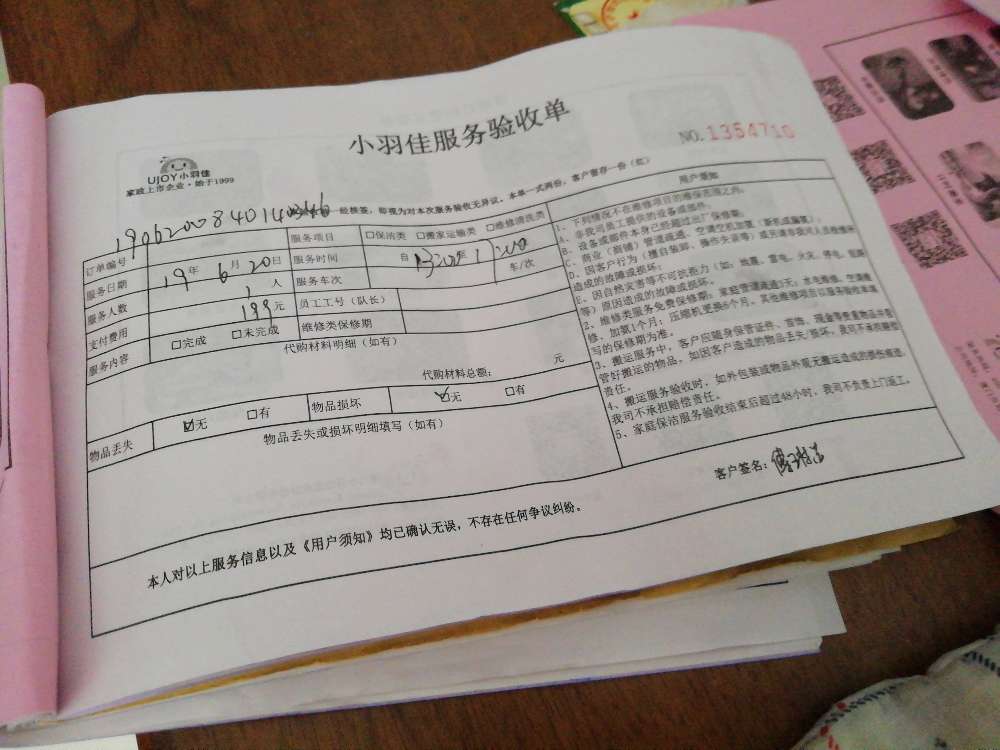 小羽佳服务验收单
UJOY小羽佳
家政上市企业·始于1999
NO.1354710
一经核签,即视为对本次服务验收无异议。本单一式两份,客户留存一份(红)
订单编号 19062008401403
服务项目 □保洁类 □搬家运输类 □维修清洗类
服务日期 19年6月20日 服务时间 自 至
服务人数 1人 服务车次 车/次
支付费用 199元 员工工号(队长)
服务内容 □完成 □未完成 维修类保修期
代购材料明细(如有)
代购材料总额: 元
物品丢失 ☑无 □有 物品损坏 ☑无 □有
物品丢失或损坏明细填写(如有)
用户须知
1、下列情况不在维修项目的维保范围之内:
A、非我司员工提供的设备或部件。
B、设备或部件本身已经超过出厂保修期。
C、商业(商铺)管道疏通、空调空机加氟
D、因客户行为(擅自装卸、操作失误等)或另请非我司人员维修
造成的故障或损坏;
E、因自然灾害等不可抗拒力(如:地震、雷电、火灾、停电
等)原因造成的故障或损坏。
2、维修类服务免费保修期:家庭管道疏通3天;水电维修、空调维
修、加氟1个月;压缩机更换6个月。其他维修项目以服务验收单填
写的保修期为准。
3、搬运服务中,客户应随身保管证件、首饰、现金等贵重物品并看
管好搬运的物品。如因客户造成的物品丢失/损坏,我司不承担赔偿
责任。
4、搬运服务验收时,如外包装或物品外观无搬运造成的损伤痕迹,
我司不承担赔偿责任。
5、家庭保洁服务验收结束后超过48小时,我司不负责上门返工。
本人对以上服务信息以及《用户须知》均已确认无误,不存在任何争议纠纷。
客户签名: